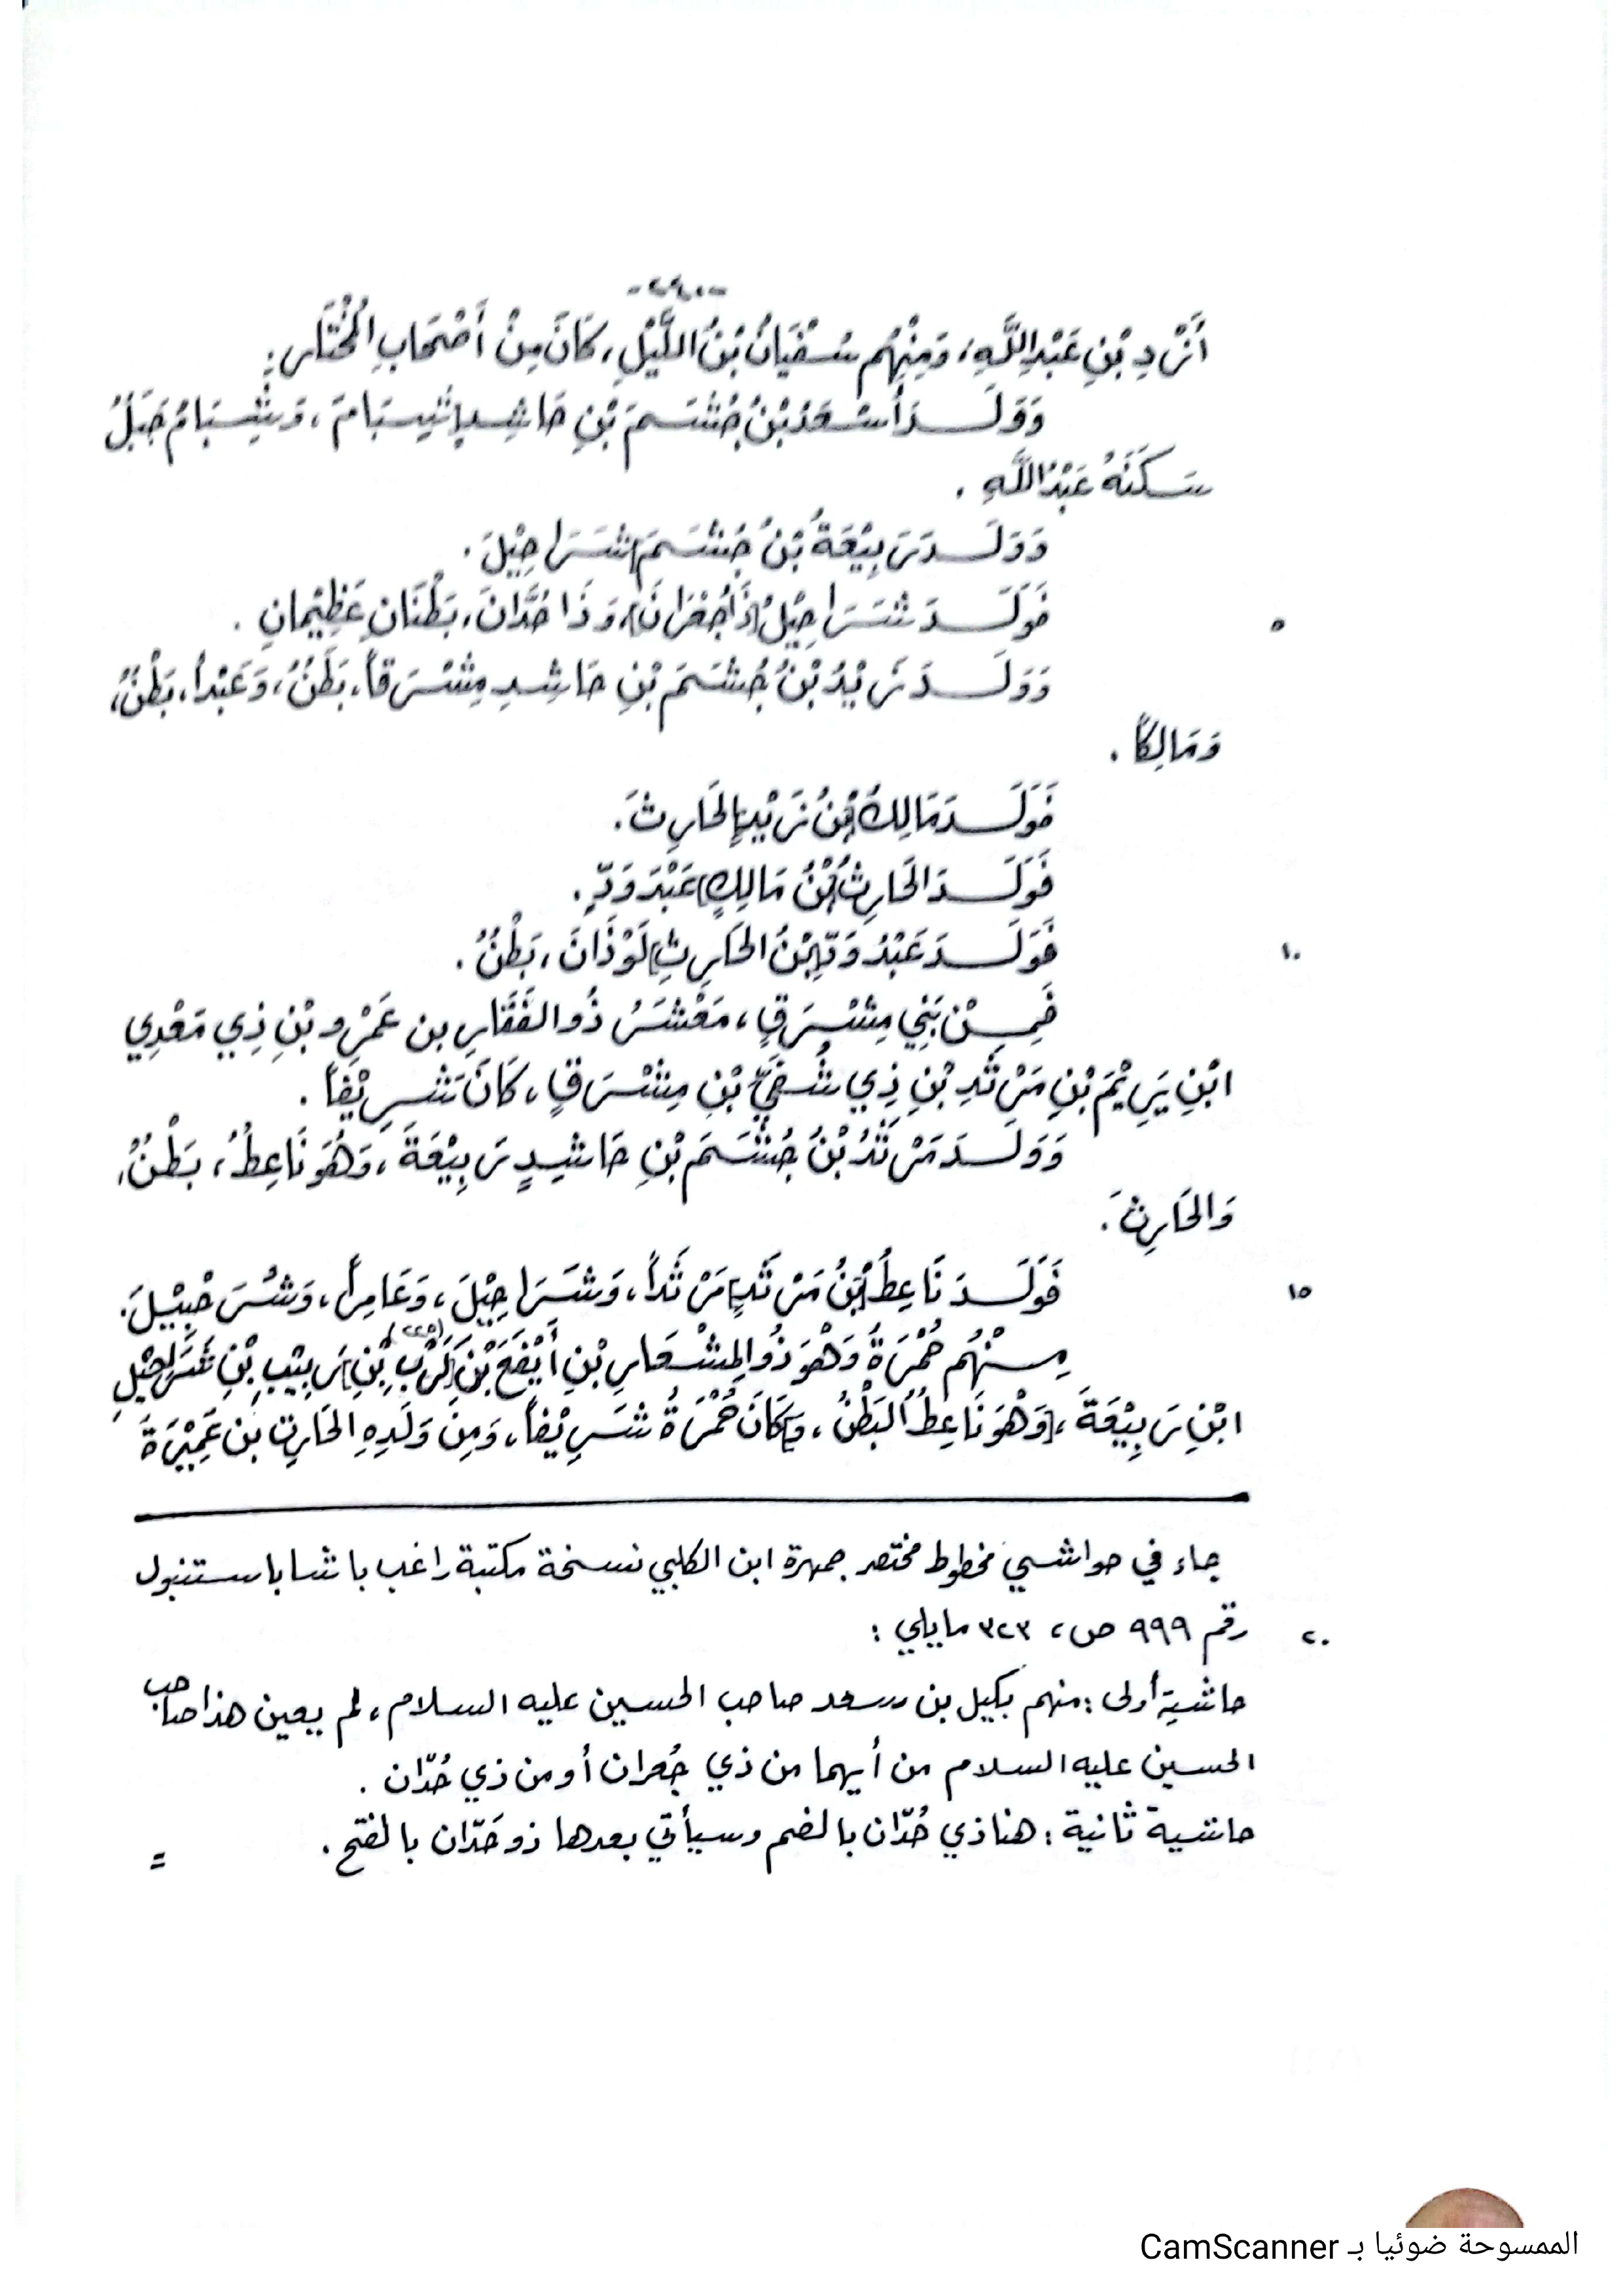 -٢٤٠-
أَزْدِ بْنِ عَبْدِاللَّهِ، وَمِنْهُم سُفْيَانُ بْنُ اللَّيْلِ، كَانَ مِنْ أَصْحَابِ الْمُخْتَارِ.
وَوَلَدَ أَسْعَدُ بْنُ جُشَمَ بْنِ حَاشِدٍ شِبَامَ، وَشِبَامُ جَبَلٌ
سَكَنَهُ عَبْدُ اللَّهِ .
وَوَلَدَ رَبِيْعَةُ بْنُ جُشَمَ شَرَاحِيْلَ .
٥ فَوَلَدَ شَرَاحِيْلُ [ذَا جُعْرَانَ]، وَذَا حُدَّانَ، بَطْنَانِ عَظِيْمَانِ .
وَوَلَدَ زَيْدُ بْنُ جُشَمَ بْنِ حَاشِدِ مِشْرَقاً، بَطْنٌ، وَعَبْداً، بَطْنٌ،
وَمَالِكاً .
فَوَلَدَ مَالِكُ [بْنُ زَيْدٍ] الحَارِثَ.
فَوَلَدَ الحَارِثُ [بْنُ مَالِكٍ] عَبْدَ وَدٍّ .
١٠ فَوَلَدَ عَبْدُ وَدِّ [بْنُ الحَارِثِ] لَوْذَانَ، بَطْنٌ .
فَمِنْ بَنِي مِشْرَقٍ، مَعْشَرُ ذُو الفَقَارِ بن عَمْرِو بْنِ ذِي مَعْدِي
ابْنِ يَرِيْمَ بْنِ مَرْثَدِ بْنِ ذِي شُفَيِّ بْنِ مِشْرَقٍ، كَانَ شَرِيْفاً .
وَوَلَدَ مَرْثَدُ بْنُ جُشَمَ بْنِ حَاشِدٍ رَبِيْعَةَ، وَهُوَ نَاعِطُ، بَطْنٌ،
وَالحَارِثَ .
١٥ فَوَلَدَ نَاعِطُ [بْنُ مَرْثَدٍ] مَرْثَداً، وَشَرَاحِيْلَ، وَعَامِراً، وَشُرَحْبِيْلَ.
مِنْهُم حُمْرَةُ وَهْوَ ذُو المِشْعَارِ بْنِ أَيْفَعَ بْنِ [كَرْبِ بْنِ] رَبِيْبِ بْنِ شَرَاحِيْلِ
ابْنِ رَبِيْعَةَ، [وَهْوَ نَاعِطُ] البَطْنُ، [وَ]كَانَ حُمْرَةُ شَرِيْفاً، وَمِنْ وَلَدِهِ الحَارِثِ بْن عَمِيْرَةَ
جاء في حواشي مخطوط مختصر جمهرة ابن الكلبي نسخة مكتبة راغب باشا باستنبول
٢٠ رقم ٩٩٩ ص، ٣٢٣ مايلي :
حاشية أولى : منهم بكيل بن سعد صاحب الحسين عليه السلام، لم يعين هذا صاحب
الحسين عليه السلام من أيهما من ذي جُعران أو من ذي حُدّان .
حاشية ثانية : هنا ذي حُدّان بالضم وسيأتي بعدها ذو حَدّان بالفتح .
=
الممسوحة ضوئيا بـ CamScanner